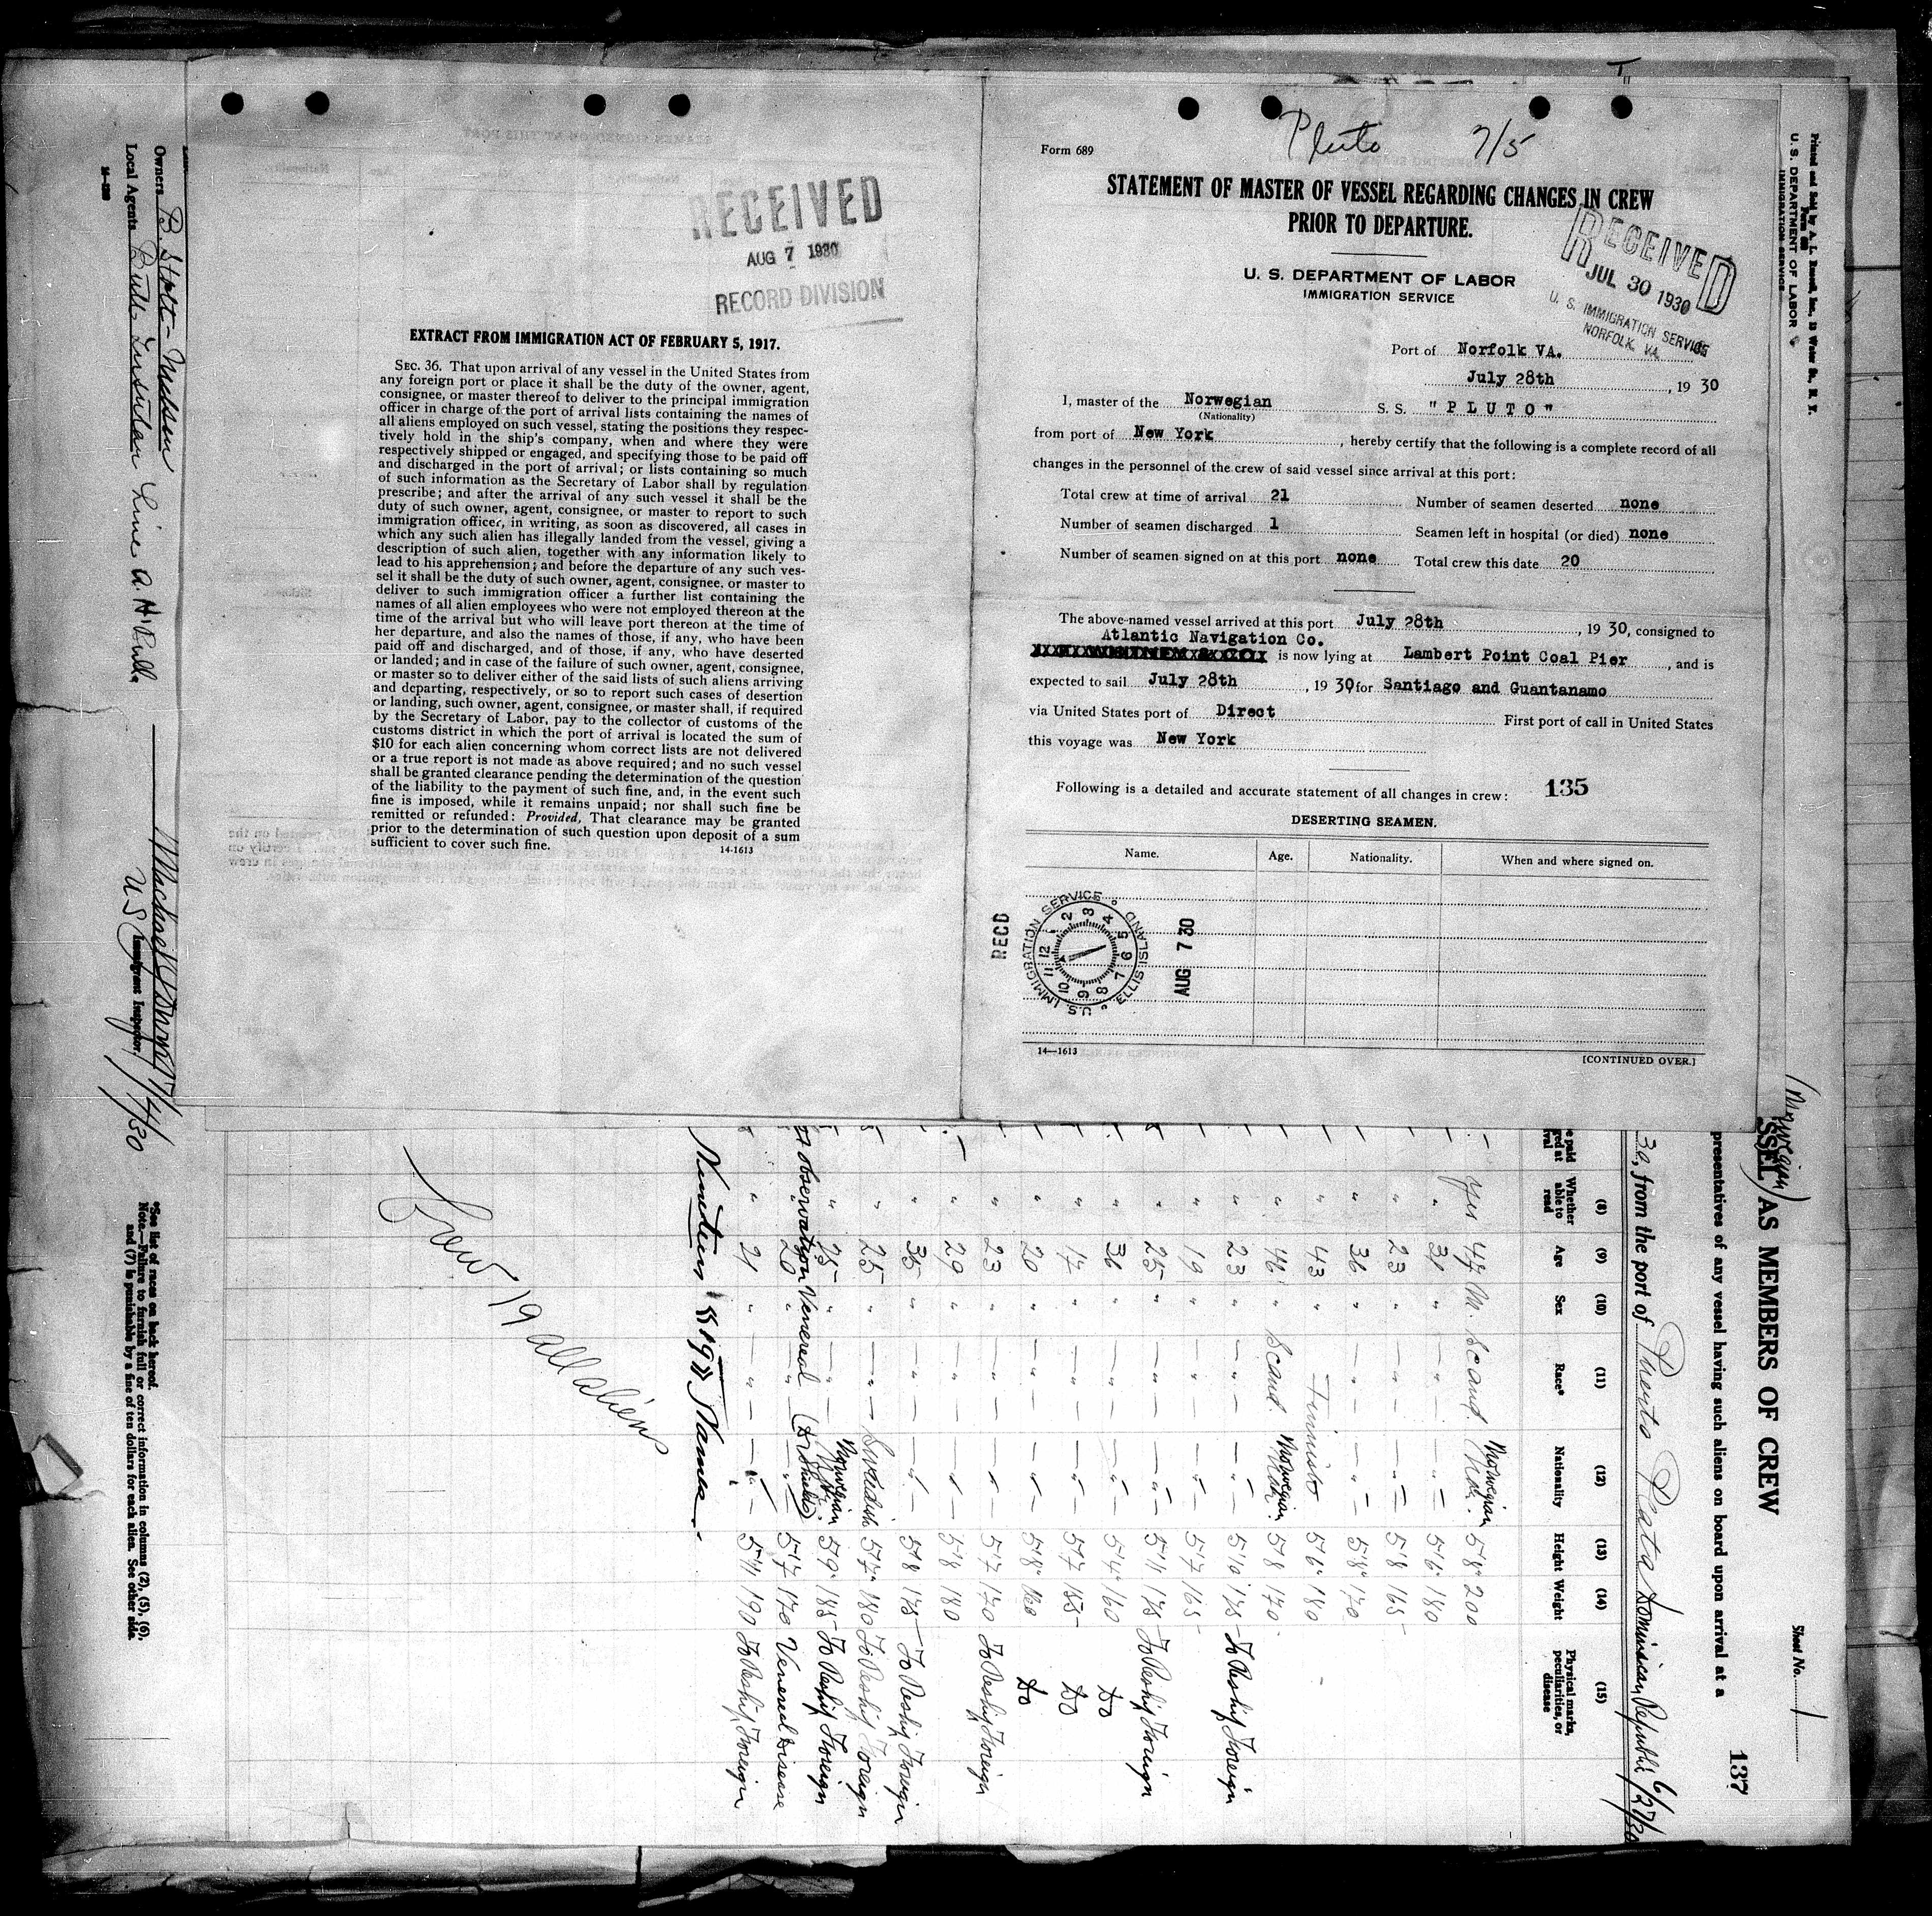 Pluto 7/5
Form 689
STATEMENT OF MASTER OF VESSEL REGARDING CHANGES IN CREW
PRIOR TO DEPARTURE.
U. S. DEPARTMENT OF LABOR
IMMIGRATION SERVICE
RECEIVED
JUL 30 1930
U. S. IMMIGRATION SERVICE
NORFOLK, VA.
Port of Norfolk VA.
July 28th, 19 30
I, master of the Norwegian S. S. "PLUTO"
(Nationality)
from port of New York, hereby certify that the following is a complete record of all
changes in the personnel of the crew of said vessel since arrival at this port:
Total crew at time of arrival 21 Number of seamen deserted none
Number of seamen discharged 1 Seamen left in hospital (or died) none
Number of seamen signed on at this port none Total crew this date 20
The above-named vessel arrived at this port July 28th, 19 30, consigned to
Atlantic Navigation Co.
is now lying at Lambert Point Coal Pier, and is
expected to sail July 28th, 19 30 for Santiago and Guantanamo
via United States port of Direct First port of call in United States
this voyage was New York
Following is a detailed and accurate statement of all changes in crew: 135
DESERTING SEAMEN.
Name. Age. Nationality. When and where signed on.
RECD
U.S. IMMIGRATION SERVICE
ELLIS ISLAND
AUG 7 30
14—1613
[CONTINUED OVER.]
RECEIVED
AUG 7 1930
RECORD DIVISION
EXTRACT FROM IMMIGRATION ACT OF FEBRUARY 5, 1917.
SEC. 36. That upon arrival of any vessel in the United States from
any foreign port or place it shall be the duty of the owner, agent,
consignee, or master thereof to deliver to the principal immigration
officer in charge of the port of arrival lists containing the names of
all aliens employed on such vessel, stating the positions they respec-
tively hold in the ship's company, when and where they were
respectively shipped or engaged, and specifying those to be paid off
and discharged in the port of arrival; or lists containing so much
of such information as the Secretary of Labor shall by regulation
prescribe; and after the arrival of any such vessel it shall be the
duty of such owner, agent, consignee, or master to report to such
immigration officer, in writing, as soon as discovered, all cases in
which any such alien has illegally landed from the vessel, giving a
description of such alien, together with any information likely to
lead to his apprehension; and before the departure of any such ves-
sel it shall be the duty of such owner, agent, consignee, or master to
deliver to such immigration officer a further list containing the
names of all alien employees who were not employed thereon at the
time of the arrival but who will leave port thereon at the time of
her departure, and also the names of those, if any, who have been
paid off and discharged, and of those, if any, who have deserted
or landed; and in case of the failure of such owner, agent, consignee,
or master so to deliver either of the said lists of such aliens arriving
and departing, respectively, or so to report such cases of desertion
or landing, such owner, agent, consignee, or master shall, if required
by the Secretary of Labor, pay to the collector of customs of the
customs district in which the port of arrival is located the sum of
$10 for each alien concerning whom correct lists are not delivered
or a true report is not made as above required; and no such vessel
shall be granted clearance pending the determination of the question
of the liability to the payment of such fine, and, in the event such
fine is imposed, while it remains unpaid; nor shall such fine be
remitted or refunded: Provided, That clearance may be granted
prior to the determination of such question upon deposit of a sum
sufficient to cover such fine.
14-1613
U. S. DEPARTMENT OF LABOR
IMMIGRATION SERVICE
Sheet No. 1
137
(Norwegian)
SSEL AS MEMBERS OF CREW
presentatives of any vessel having such aliens on board upon arrival at a
30, from the port of Puerto Plata Dominican Republic 6/27/30
(8) (9) (10) (11) (12) (13) (14) (15)
Whether able to read Age Sex Race* Nationality Height Weight Physical marks, peculiarities, or disease
yes 47 M. Scand. Norwegian 5'8" 200
" 31 " " " 5'6" 180
" 23 " " " 5'8 165
" 36 " " " 5'8" 170
" 43 " Finnish 5'6" 180
" 46 " Scand Norwegian 5'8 170
" 23 " " " 175 To Reship Foreign
" 19 " " " 5'7 165
" 25 " " " 5'11 175 To Reship Foreign
" 36 " " " 160 Do
" 17 " " " 5'7 155 Do
" 20 " " " 5'8" 160 Do
" 23 " " " 5'7 170 To Reship Foreign
" 29 " " " 5'8 180
" 35 " " " 5'8 175 To Reship Foreign
" 25 " " Swedish 5'7" 180 To Reship Foreign
" 25 " " Norwegian 5'9" 185 To Reship Foreign
" 20 " " " 5'7 170 Venereal Disease
observation Venereal
" 21 " " " 5'11 190 To Reship Foreign
Nineteen "19" Names
Crew 19 all alien
*See list of races on back hereof.
Note.—Failure to furnish full or correct information in columns (2), (5), (6),
and (7) is punishable by a fine of ten dollars for each alien. See other side.
Owners B. Stolt-Nielsen
Local Agents Bull Insular Line A. H. Bull
U S Immigrant Inspector.
7/4/30